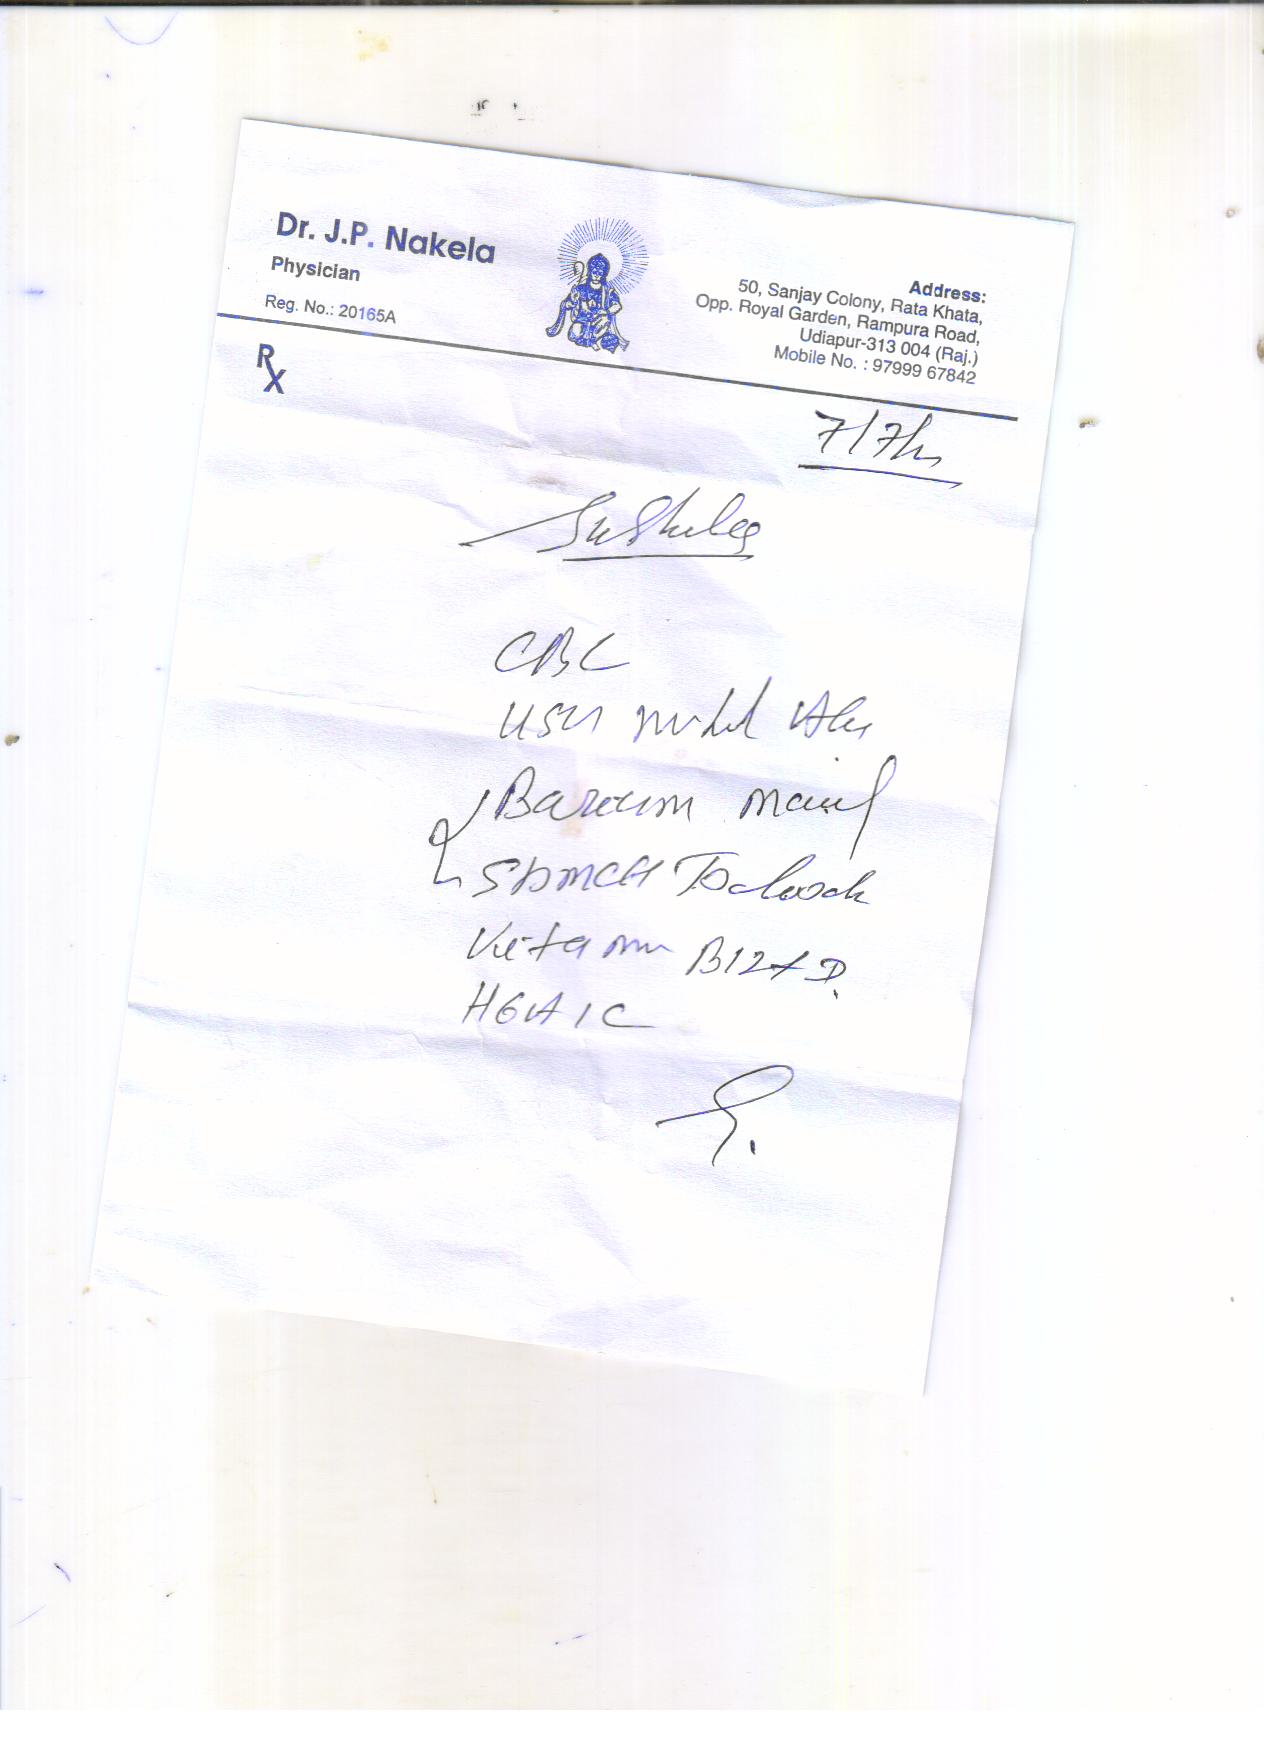 Dr. J.P. Nakela
Physician
Reg. No.: 20165A
Address:
50, Sanjay Colony, Rata Khata,
Opp. Royal Garden, Rampura Road,
Udiapur-313 004 (Raj.)
Mobile No. : 97999 67842
Rx
7/7/
Sushila
CBC
USG
Barium
Stomach To
Vitamin B12 + D.
HGA1C